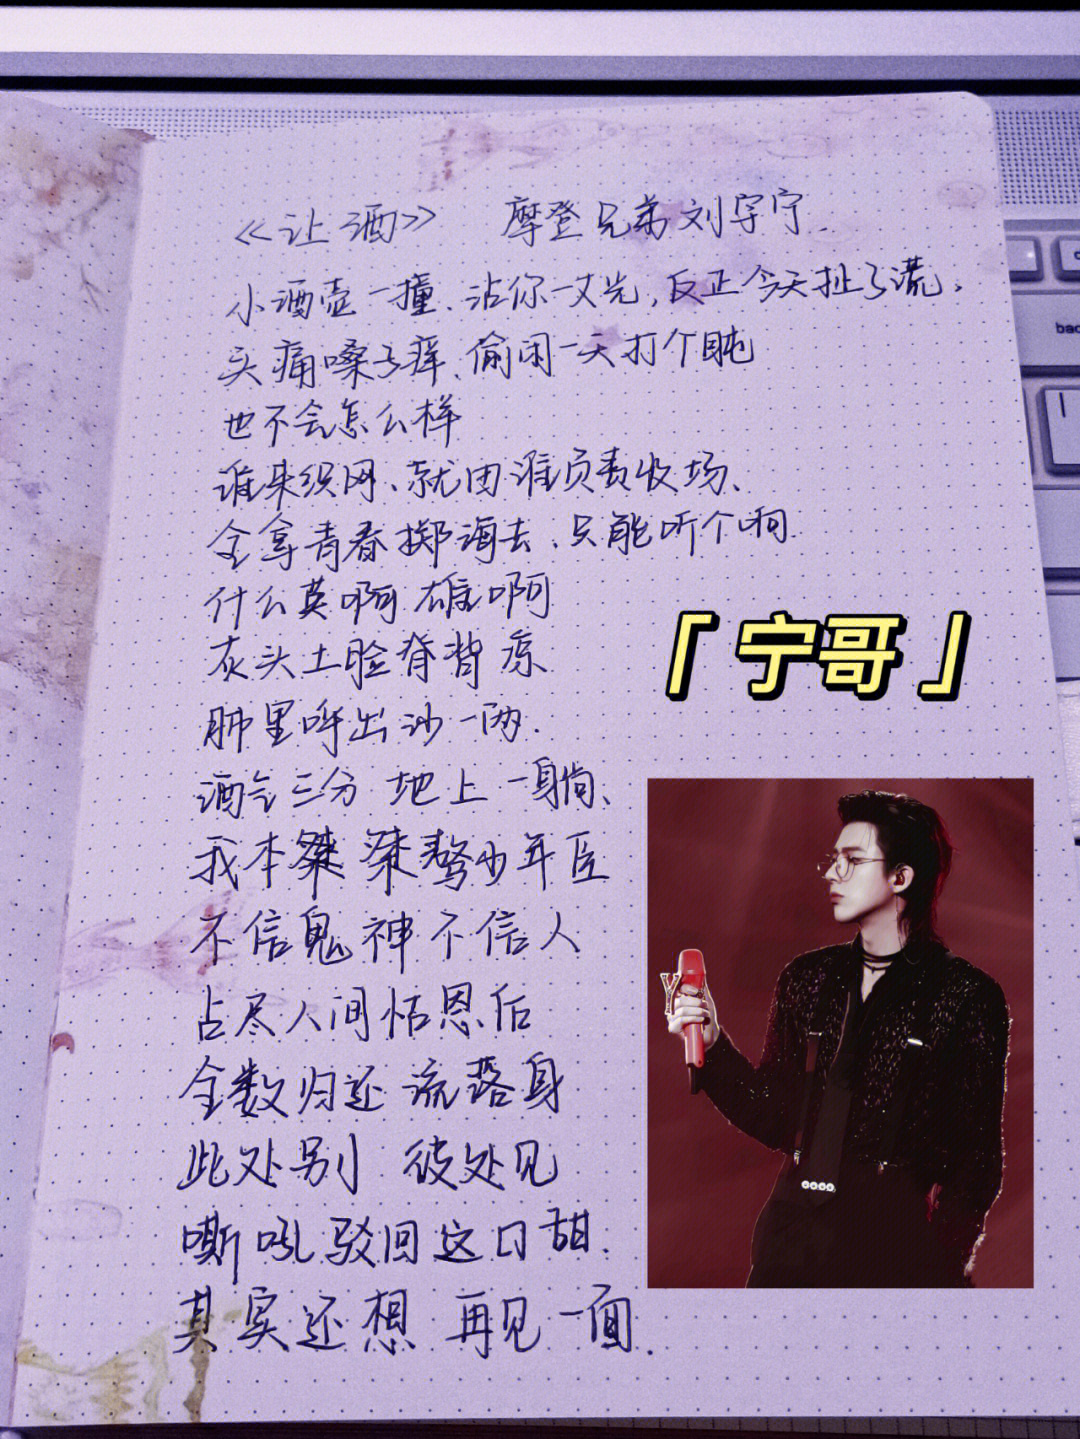 《让酒》 摩登兄弟刘宇宁
小酒壶一撞、沾你一丈光,反正今天扯了谎。
头痛嗓子痒、偷闲一天打个盹
也不会怎么样
谁来织网、就由谁负责收场、
全拿青春掷海去、只能听个响
什么英啊 雄啊
灰头土脸脊背凉
肺里呼出沙一两.
酒气三分 地上一身躺、
我本桀 桀骜少年臣
不信鬼神不信人
占尽人间恬恩后
全数归还流落身
此处别 彼处见
嘶吼驳回这口甜.
其实还想 再见一面.
「宁哥」
bac